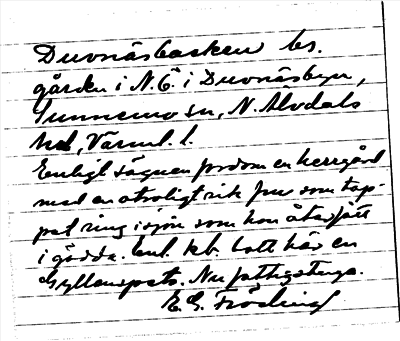 Duvnäsbacken bs.
gården i N.Ö. i Duvnäsbyn,
Gunnerud sn, N. Älvdals
hd, Värml. l.
Enligt sägnen fordom en herrgård
med en otroligt rik fru som tap-
pat ring i sjön som hon återfått
i gädda. Enl. kb. bott här en
Gyllenspets. Nu fattigstuga.
E. G. Fröding